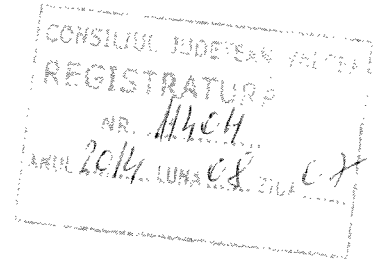 CONSILIUL JUDEȚEAN VALCEA
REGISTRATURA
NR. 11404
ANUL 2014 LUNA 08 ZIUA 07